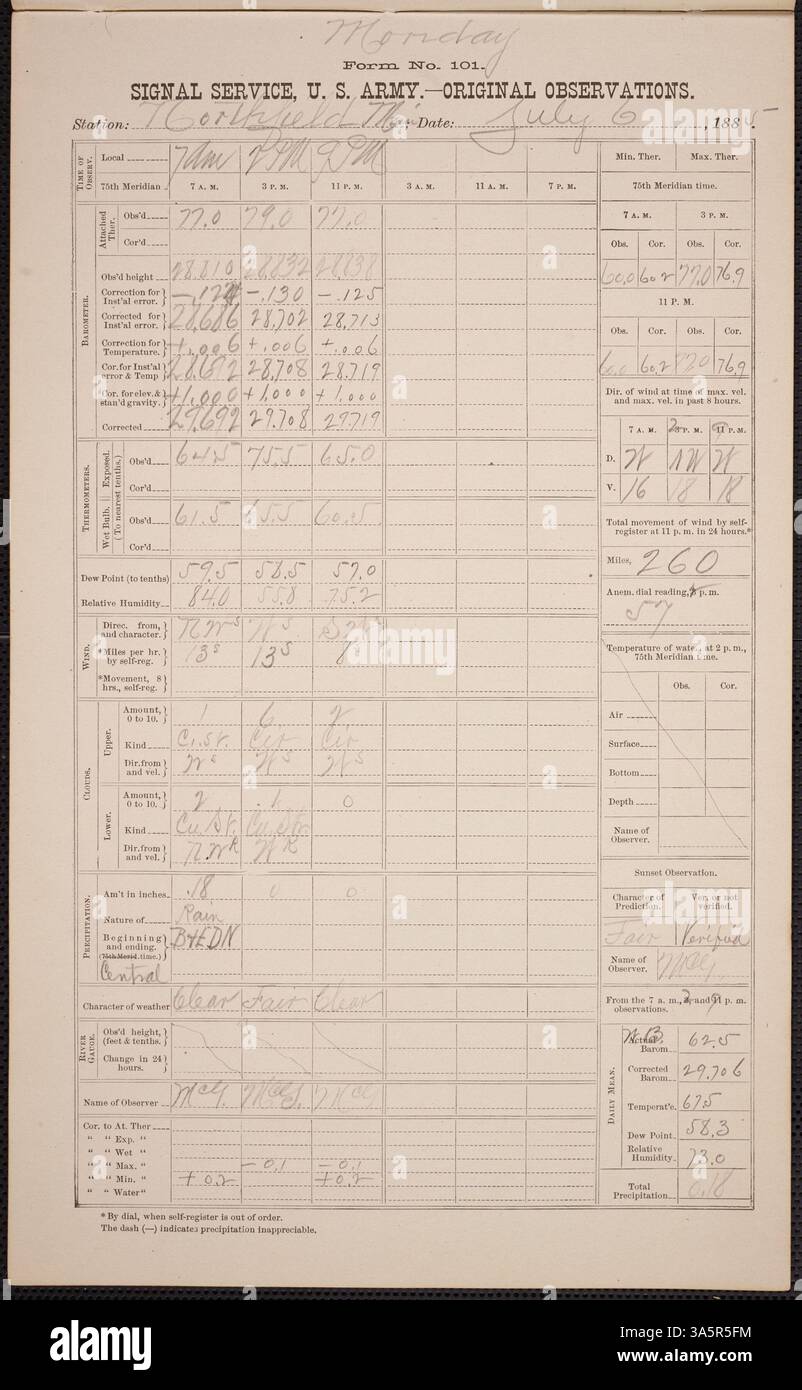 Monday
Form No. 101.
SIGNAL SERVICE, U. S. ARMY.—ORIGINAL OBSERVATIONS.
Station: Northfield Min Date: July 6, 1885.
TIME OF OBSERV.
Local 7 Am 2 PM 9 PM
75th Meridian 7 A. M. 3 P. M. 11 P. M. 3 A. M. 11 A. M. 7 P. M.
BAROMETER.
Attached Ther.
Obs'd 77.0 79.0 77.0
Cor'd
Obs'd height 28.810 28.832 28.838
Correction for Inst'al error. —.124 —.130 —.125
Corrected for Inst'al error. 28.686 28.702 28.713
Correction for Temperature. +.006 +.006 +.006
Cor. for Inst'al error & Temp 28.692 28.708 28.719
Cor. for elev. & stan'd gravity. +1.000 +1.000 +1.000
Corrected 29.692 29.708 29.719
THERMOMETERS.
Exposed.
Wet Bulb.
(To nearest tenths.)
Obs'd 64.5 75.5 65.0
Cor'd
Obs'd 61.5 65.5 60.5
Cor'd
Dew Point (to tenths) 59.5 58.5 57.0
Relative Humidity 84.0 55.8 75.2
WIND.
Direc. from, and character. N W s W s
*Miles per hr. by self-reg. 13 s 13 s 8 s
*Movement, 8 hrs., self-reg.
CLOUDS.
Upper.
Amount, 0 to 10. 1 6 2
Kind Ci. St. Cir Cir
Dir. from and vel. W s W s W s
Lower.
Amount, 0 to 10. 2 1 0
Kind Cu. St. Cu. St.
Dir. from and vel. N. W R W R
PRECIPITATION.
Am't in inches. .18 0 0
Nature of Rain
Beginning and ending. B+EDN
(75th Merid. time.)
Central
Character of weather Clear Fair Clear
RIVER GAUGE.
Obs'd height, (feet & tenths.
Change in 24 hours.
Name of Observer McG. McG. McG
Cor. to At. Ther
" " Exp. "
" " Wet "
" " Max. " — 0.1 — 0.1
" " Min. " + 0.2 + 0.2
" " Water "
* By dial, when self-register is out of order.
The dash (—) indicates precipitation inappreciable.
Min. Ther. Max. Ther.
75th Meridian time.
7 A. M. 3 P. M.
Obs. Cor. Obs. Cor.
60.0 60.2 77.0 76.9
11 P. M.
Obs. Cor. Obs. Cor.
60.0 60.2 76.9
Dir. of wind at time of max. vel. and max. vel. in past 8 hours.
7 A. M. 2 P. M. 9 P. M.
D. W NW W
V. 16 18 18
Total movement of wind by self-register at 11 p. m. in 24 hours.*
Miles, 260
Anem. dial reading, p. m.
57
Temperature of water, at 2 p. m., 75th Meridian time.
Obs. Cor.
Air
Surface
Bottom
Depth
Name of Observer.
Sunset Observation.
Character of Prediction. Ver. or not verified.
Fair Verified
Name of Observer. McG.
From the 7 a. m., 2, and 9 p. m. observations.
DAILY MEAN.
Actual Barom W B 62.5
Corrected Barom. 29.706
Temperat'e. 67.5
Dew Point 58.3
Relative Humidity 73.0
Total Precipitation. 0.18
alamy
Image ID: 3A5R5FM
www.alamy.com